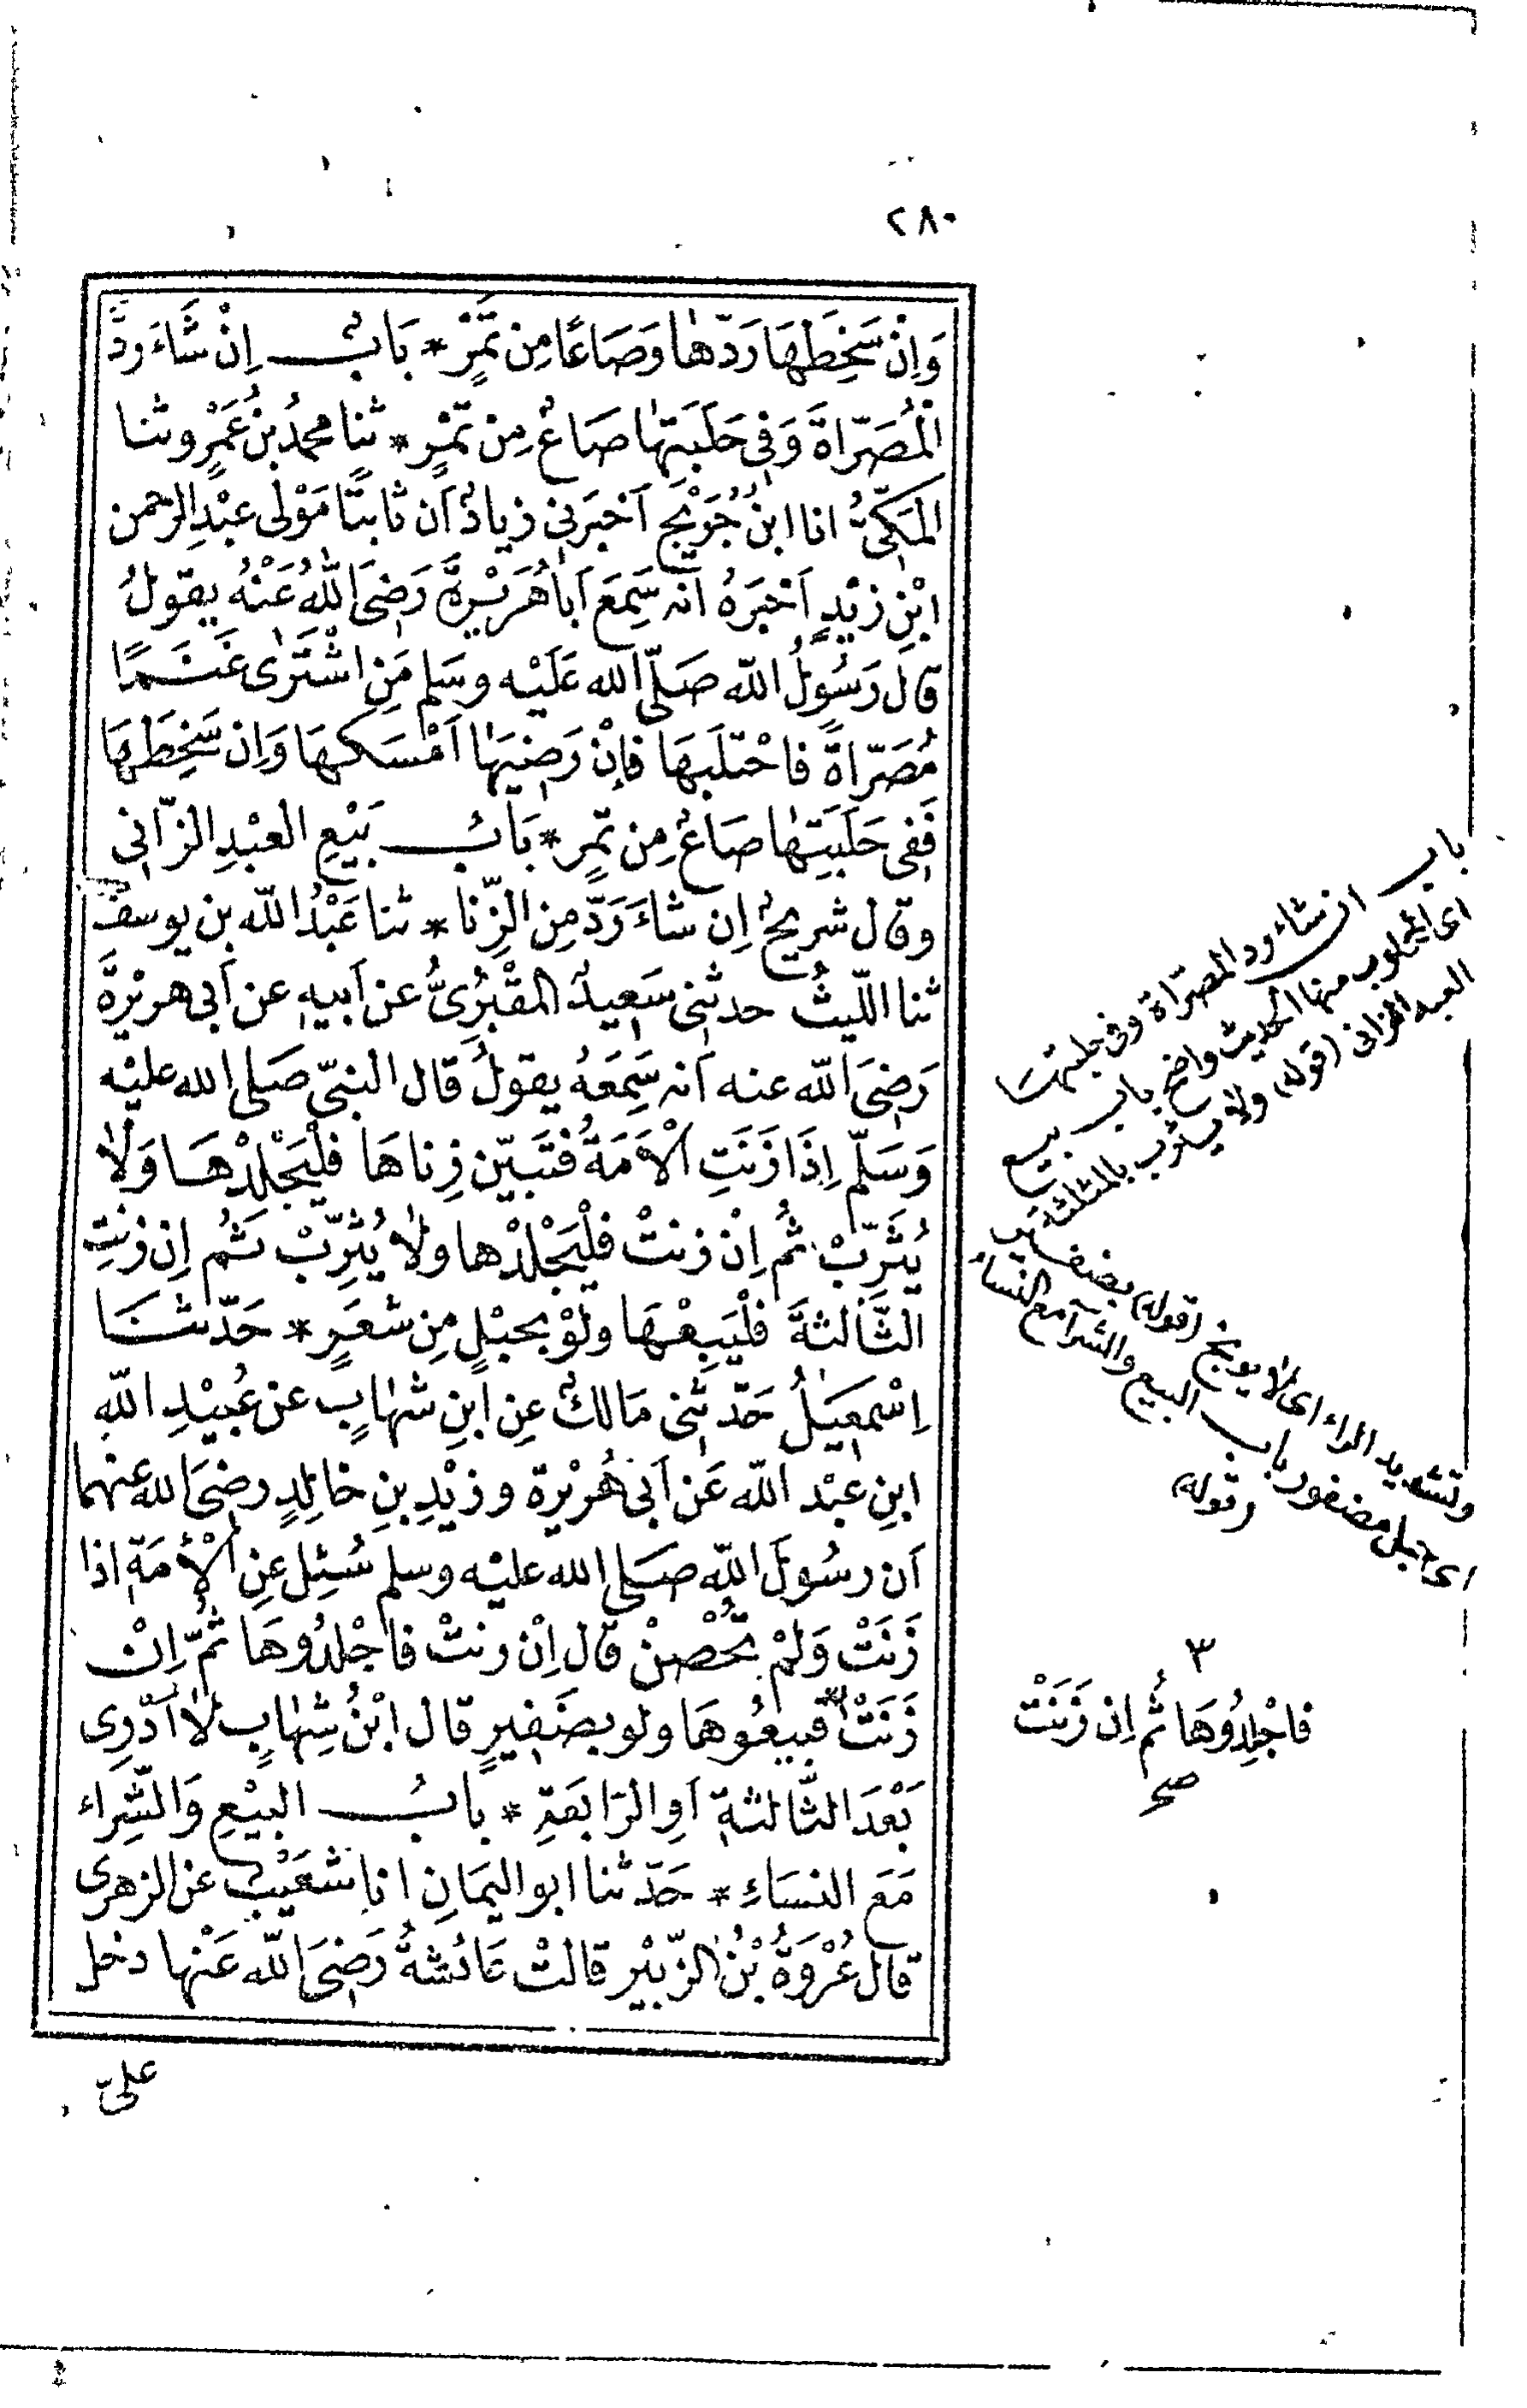 ٢٨٠
وَاِنْ سَخِطَهَا رَدّهَا وَصَاعًا مِن تَمْرٍ * بَابٌ اِنْ شَاءَ رَدَّ
الْمُصَرّاةَ وَفى حَلْبَتِهَا صَاعٌ مِن تَمْرٍ * ثنا محمدُ بنُ عَمْرٍو ثنا
المَكىّ انا ابنُ جُرَيْجٍ اَخبرَنى زيادٌ اَن ثابتًا مَوْلى عبْدِ الرحمن
ابْنِ زيْدٍ اَخبَرَهُ اَنه سَمِعَ اَبا هُرَيْرَةَ رَضىَ اللهُ عَنْهُ يقولُ
قال رَسُولُ الله صَلّى الله عَلَيْه وسَلم مَنِ اشْتَرٰى غَنَمًا
مُصَرّاةً فاحْتلَبَهَا فاِنْ رَضِيَهَا اَمْسَكهَا وَاِن سَخِطَهَا
فَفى حَلْبَتِهَا صَاعٌ مِن تَمرٍ * بَابُ بَيْعِ العبْدِ الزّانى
وقال شريحٌ اِن شاءَ رَدَّ مِنَ الزِّنا * ثنا عَبْدُ الله بن يوسفَ
ثنا اللّيثُ حدثنى سَعيدٌ المقْبُرِىُّ عن اَبيهِ عن اَبى هريْرةَ
رَضىَ الله عنه اَنه سَمِعَهُ يقولُ قال النبىّ صَلى الله عليْه
وَسَلّم اِذَا زَنَتِ الْاَمَةُ فتَبَيّن زِناهَا فلْيَجْلِدْهَا وَلَا
يُثَرِّبْ ثُمَّ اِنْ زنتْ فلْيَجْلِدْها ولَا يُثرِّبْ ثُم اِن زنتِ
الثّالثةَ فلْيَبِعْهَا ولوْ بحبْلٍ مِن شعَرٍ * حَدّثنَا
اِسْمٰعيلُ حَدّثنى مَالكٌ عنِ ابنِ شهَابٍ عن عُبيْدِ اللّه
ابنِ عبْد الله عَن اَبى هُريْرة وزيْدِ بنِ خالِدٍ رضىَ الله عنهما
اَن رسُولَ الله صَلى الله عليْه وسلم سُئِل عنِ الْاَمَةِ اِذا
زَنَتْ وَلمْ تُحْصنْ قال اِنْ زنتْ فاجْلِدُوهَا ثُمّ اِنْ
زَنَتْ ٣ فبيعُوهَا ولو بضَفيرٍ قال ابْنُ شِهَابٍ لَا اَدْرِى
بَعْدَ الثَّالثةِ اَوِ الرّابَعَةِ * بابُ البيْعِ وَالشِّراء
مَعَ النسَاءِ * حَدّثنا ابو اليمَانِ انا شعَيْبٌ عن الزهرى
قال عُرْوَةُ بْنُ الزّبيْر قالتْ عَائشةُ رَضىَ الله عَنْها دخل
علىّ
باب ان شاء رد المصرّاة وفى حلبتها
اى المحلوب منها الحديث واضح باب بيع
العبد الزانى (قوله) ولا يثرب بالمثلثة
وتشديد الراء اى لا يوبخ (قوله) بضفير
اى حبل مضفور باب البيع والشرآ مع النساء
(قوله)
٣
فاجْلِدُوهَا ثُم اِن زَنَتْ
صح